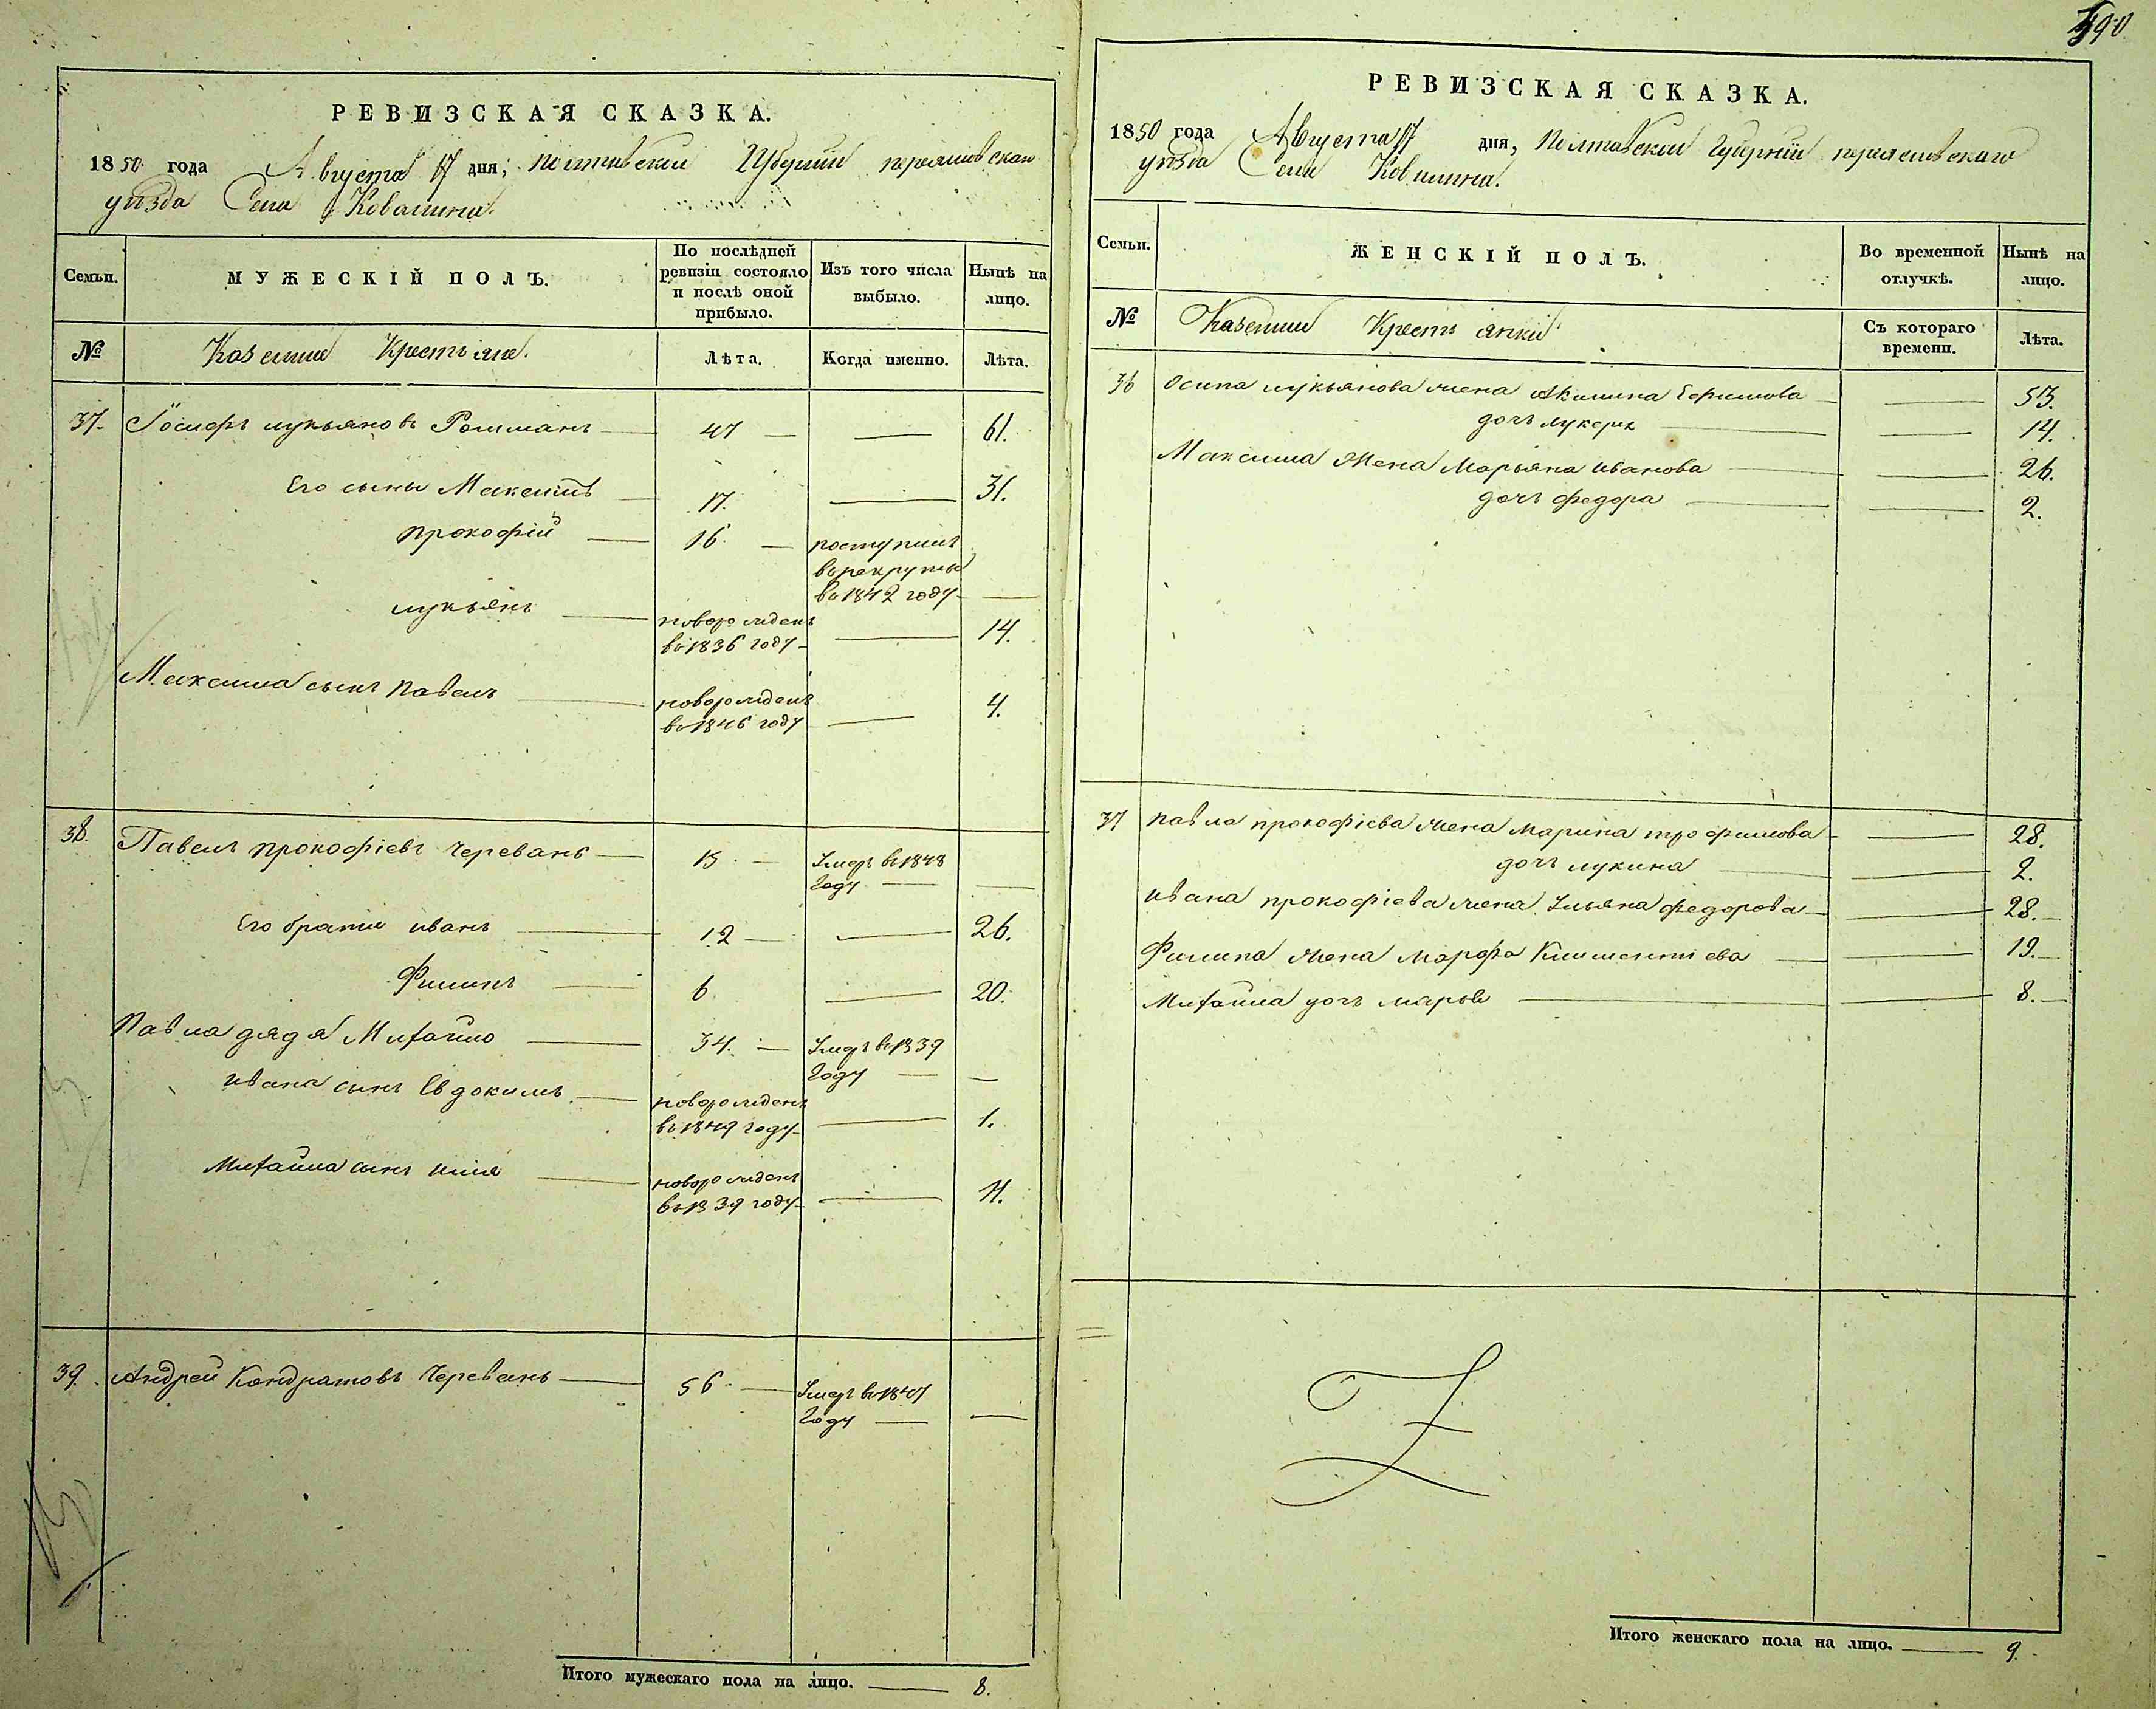 390
РЕВИЗСКАЯ СКАЗКА.
1850 года Августа 17 дня, Полтавской Губернии переяславскаго
уѣзда Села Ковалина.
Семьи.
МУЖЕСКІЙ ПОЛЪ.
По послѣдней
ревизіи состояло
и послѣ оной
прибыло.
Изъ того числа
выбыло.
Нынѣ на
лицо.
№
Казенные Крестьяне.
Лѣта.
Когда именно.
Лѣта.
37. Іосифъ лукьяновъ Рошманъ 47 61.
Его сыны Максимъ 17. 31.
прокофій 16 поступилъ
въ рекруты
въ 1842 году
лукьянъ новорожденъ
въ 1836 году 14.
Максима сынъ павелъ новорожденъ
въ 1846 году 4.
38. Павелъ прокофіевъ Черевань 15 Умеръ въ 1848
Году
Его братья иванъ 12 26.
Филипъ 6 20.
Павла дядя Михайло 34. Умеръ въ 1839
Году
ивана сынъ Евдокимъ новорожденъ
въ 1849 году 1.
Михайла сынъ илья новорожденъ
въ 1839 году 11.
39. Андрей Кондратовъ Черевань 56 Умеръ въ 1847
Году
Итого мужескаго пола на лицо. 8.
РЕВИЗСКАЯ СКАЗКА.
1850 года Августа 17 дня, Полтавской Губерніи переяславскаго
уѣзда Села Ковалина.
Семьи.
ЖЕНСКІЙ ПОЛЪ.
Во временной
отлучкѣ.
Нынѣ на
лицо.
№
Казенные Крестьянки
Съ котораго
времени.
Лѣта.
36 Осипа лукьянова жена Акилина Ефимова 53.
дочъ лукеря 14.
Максима жена Марьяна иванова 26.
дочъ федора 2.
37 павла прокофіева жена марина трофимова 28.
дочъ лукина 2.
ивана прокофіева жена Ульяна федорова 28.
Филипа жена марфа Климентіева 19.
Михайла дочъ марья 8.
Итого женскаго пола на лицо. 9.